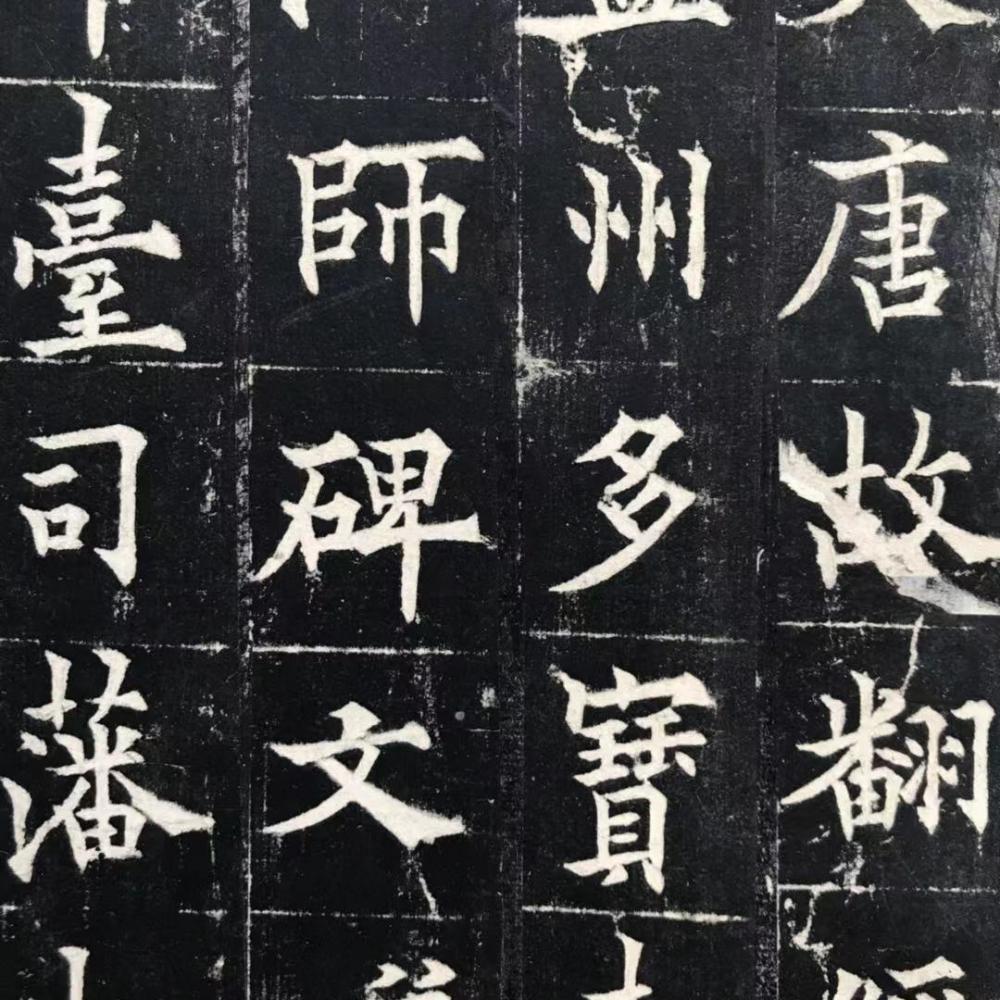 唐故翻
州多寶
師碑文
臺司藩